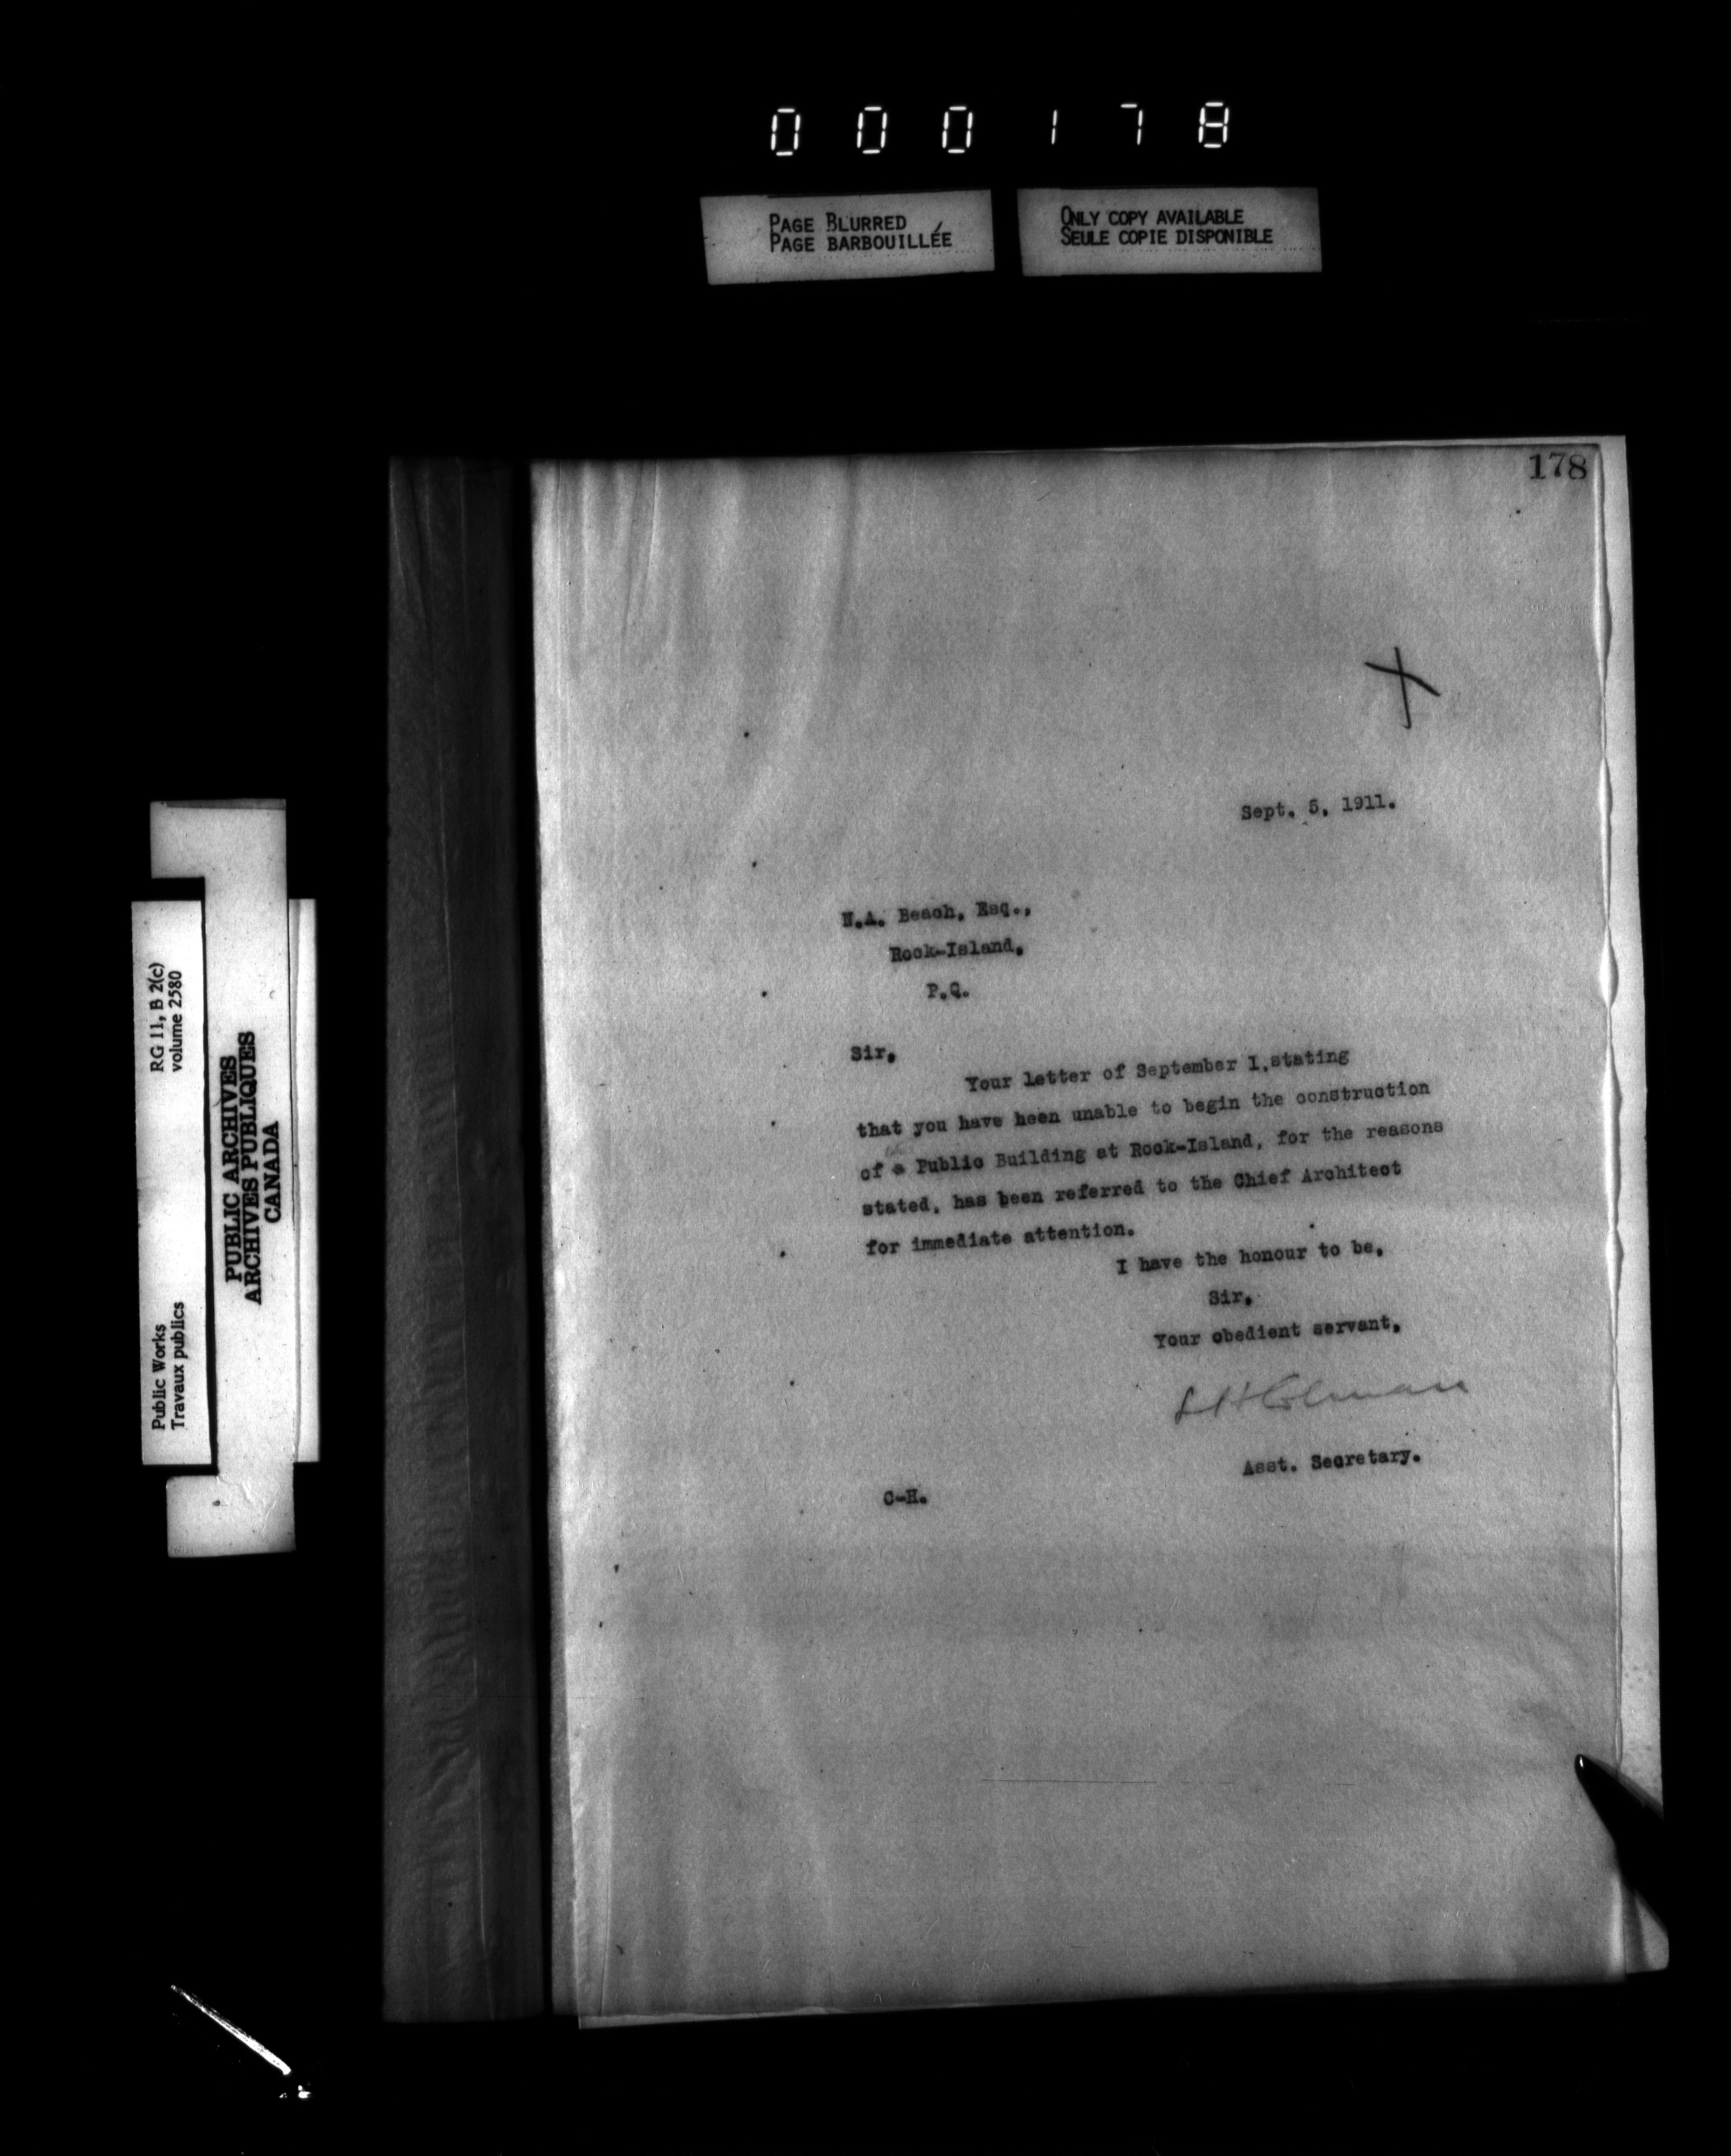 000178
PAGE BLURRED
PAGE BARBOUILLÉE
ONLY COPY AVAILABLE
SEULE COPIE DISPONIBLE
178
X
Sept. 5, 1911.
N.A. Beach, Esq.,
Rock-Island,
P.Q.
Sir,
Your letter of September 1, stating
that you have been unable to begin the construction
of a Public Building at Rock-Island, for the reasons
stated, has been referred to the Chief Architect
for immediate attention.
I have the honour to be,
Sir,
Your obedient servant,
Asst. Secretary.
C-H.
RG 11, B 2(c)
volume 2580
Public Works
Travaux publics
PUBLIC ARCHIVES
ARCHIVES PUBLIQUES
CANADA